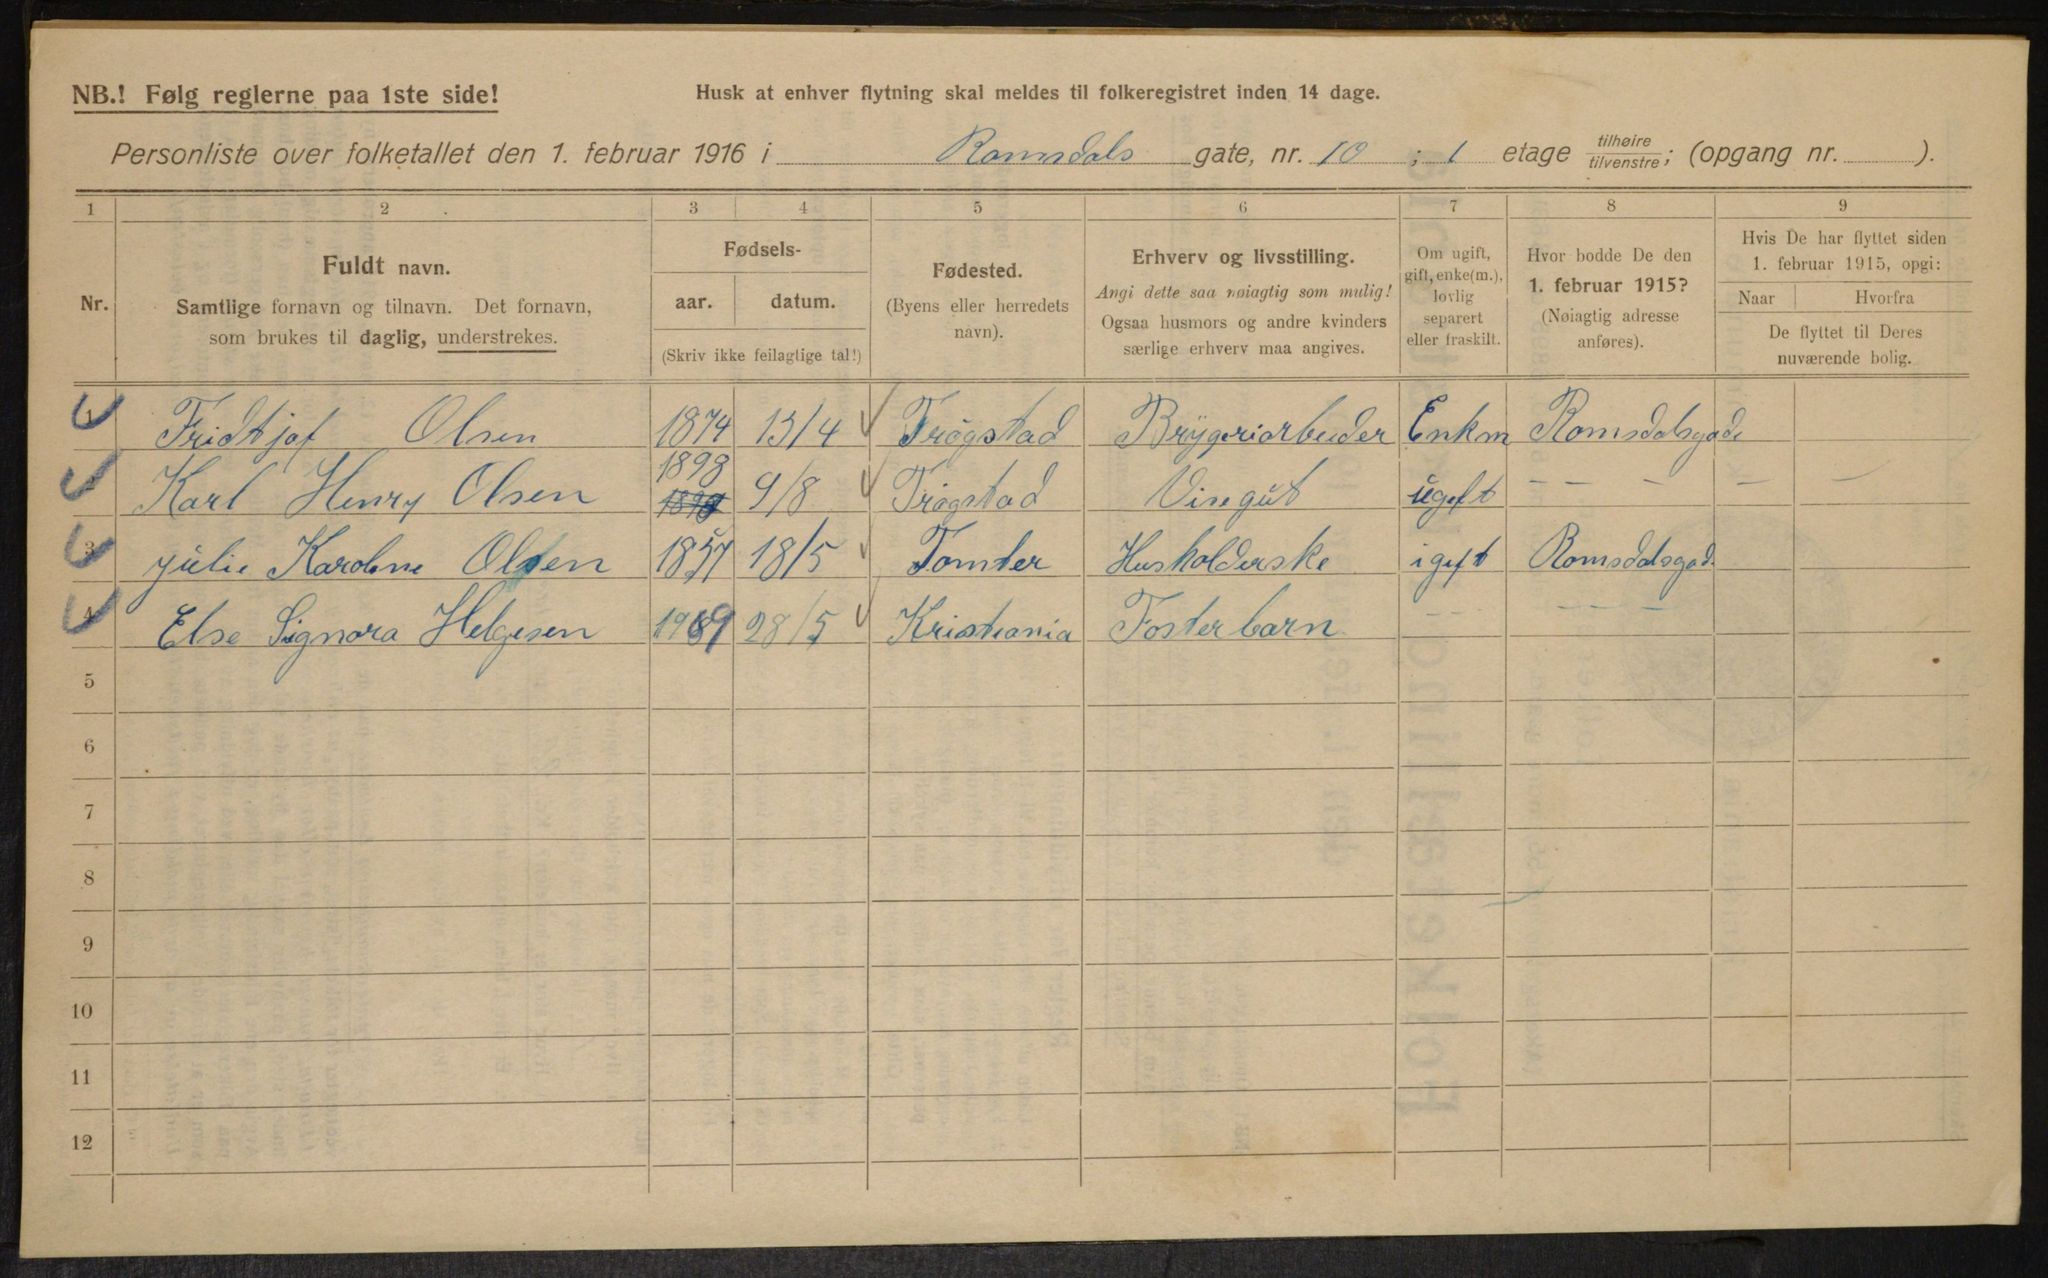 NB.! Følg reglerne paa 1ste side!
Husk at enhver flytning skal meldes til folkeregistret inden 14 dage.
Personliste over folketallet den 1. februar 1916 i Romsdals gate, nr. 10 ; 1 etage tilhøire/tilvenstre; (opgang nr. ).
1 2 3 4 5 6 7 8 9
Nr.
Fuldt navn.
Samtlige fornavn og tilnavn. Det fornavn,
som brukes til daglig, understrekes.
Fødsels-
aar. datum.
(Skriv ikke feilagtige tal!)
Fødested.
(Byens eller herredets
navn).
Erhverv og livsstilling.
Angi dette saa nøiagtig som mulig!
Ogsaa husmors og andre kvinders
særlige erhverv maa angives.
Om ugift,
gift, enke(m.),
lovlig
separert
eller fraskilt.
Hvor bodde De den
1. februar 1915?
(Nøiagtig adresse
anføres).
Hvis De har flyttet siden
1. februar 1915, opgi:
Naar Hvorfra
De flyttet til Deres
nuværende bolig.
1 Fridtjof Olsen 1874 13/4 Trøgstad Brygeriarbeider Enkm Romsdalsgade
Karl Henry Olsen 1898 9/8 Trøgstad Visegut ugeft – – – – – –
3 Julie Karoline Olsen 1857 18/5 Tomter Husholderske igeft Romsdalsgad.
4 Else Signora Helgesen 1909 28/5 Kristiania Fosterbarn – – – – – –
5
6
7
8
9
10
11
12